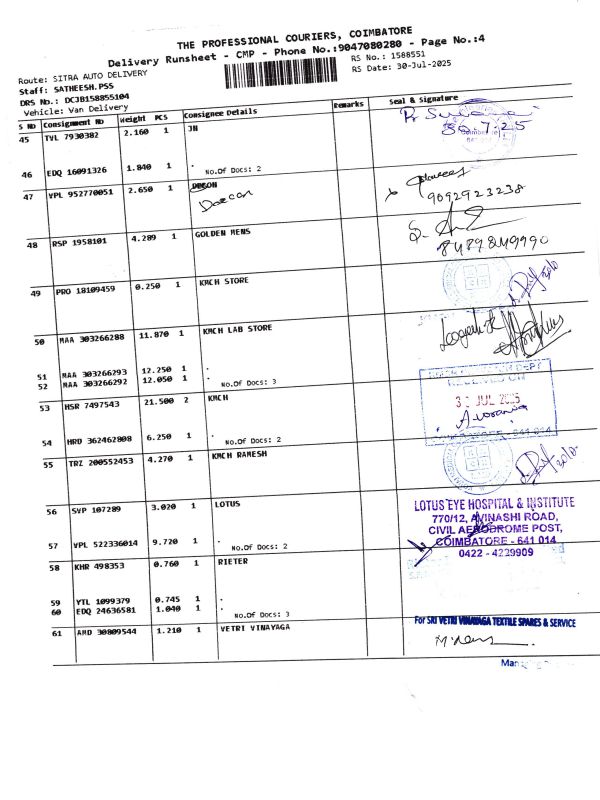 THE PROFESSIONAL COURIERS, COIMBATORE
Delivery Runsheet - CMP - Phone No.:9047080280 - Page No.:4
Route: SITRA AUTO DELIVERY
RS No.: 1588551
Staff: SATHEESH.PSS
RS Date: 30-Jul-2025
DRS No.: DCJB158855104
Vehicle: Van Delivery
S No Consignment No Weight PCS Consignee Details Remarks Seal & Signature
45 TVL 7930382 2.160 1 JN
30.7.25
46 EDQ 16091326 1.840 1 . No.Of Docs: 2
47 VPL 952770051 2.650 1
Deccan
9092923238
48 RSP 1958101 4.289 1 GOLDEN MENS
8489849990
49 PRO 18109459 0.250 1 KMCH STORE
50 MAA 303266288 11.870 1 KMCH LAB STORE
51 MAA 303266293 12.250 1 .
52 MAA 303266292 12.050 1 . No.Of Docs: 3
53 HSR 7497543 21.500 2 KMCH
RECEIVED ON
JUL 2025
54 HRD 362462808 6.250 1 . No.Of Docs: 2
COIMBATORE - 641 014
55 TRZ 200552453 4.270 1 KMCH RAMESH
56 SVP 107289 3.020 1 LOTUS
LOTUS EYE HOSPITAL & INSTITUTE
770/12, AVINASHI ROAD,
CIVIL AERODROME POST,
COIMBATORE - 641 014
0422 - 4229909
57 VPL 522336014 9.720 1 . No.Of Docs: 2
58 KHR 498353 0.760 1 RIETER
59 YTL 1099379 0.745 1 .
60 EDQ 24636581 1.040 1 . No.Of Docs: 3
61 AMD 30809544 1.210 1 VETRI VINAYAGA
For SRI VETRI VINAYAGA TEXTILE SPARES & SERVICE